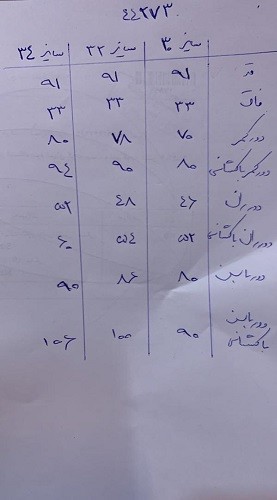 ۴۴۲۷۳
سایز ۳۰ سایز ۳۲ سایز ۳۴
قد ۹۱ ۹۱ ۹۱
فاق ۳۳ ۳۳ ۳۳
دور کمر ۷۰ ۷۸ ۸۰
دور کمر باکشسانی ۸۰ ۹۰ ۹۴
دور ران ۴۶ ۴۸ ۵۲
دور ران باکشسانی ۵۲ ۵۴ ۶۰
دور باسن ۸۰ ۸۶ ۹۰
دور باسن باکشسانی ۹۰ ۱۰۰ ۱۰۶